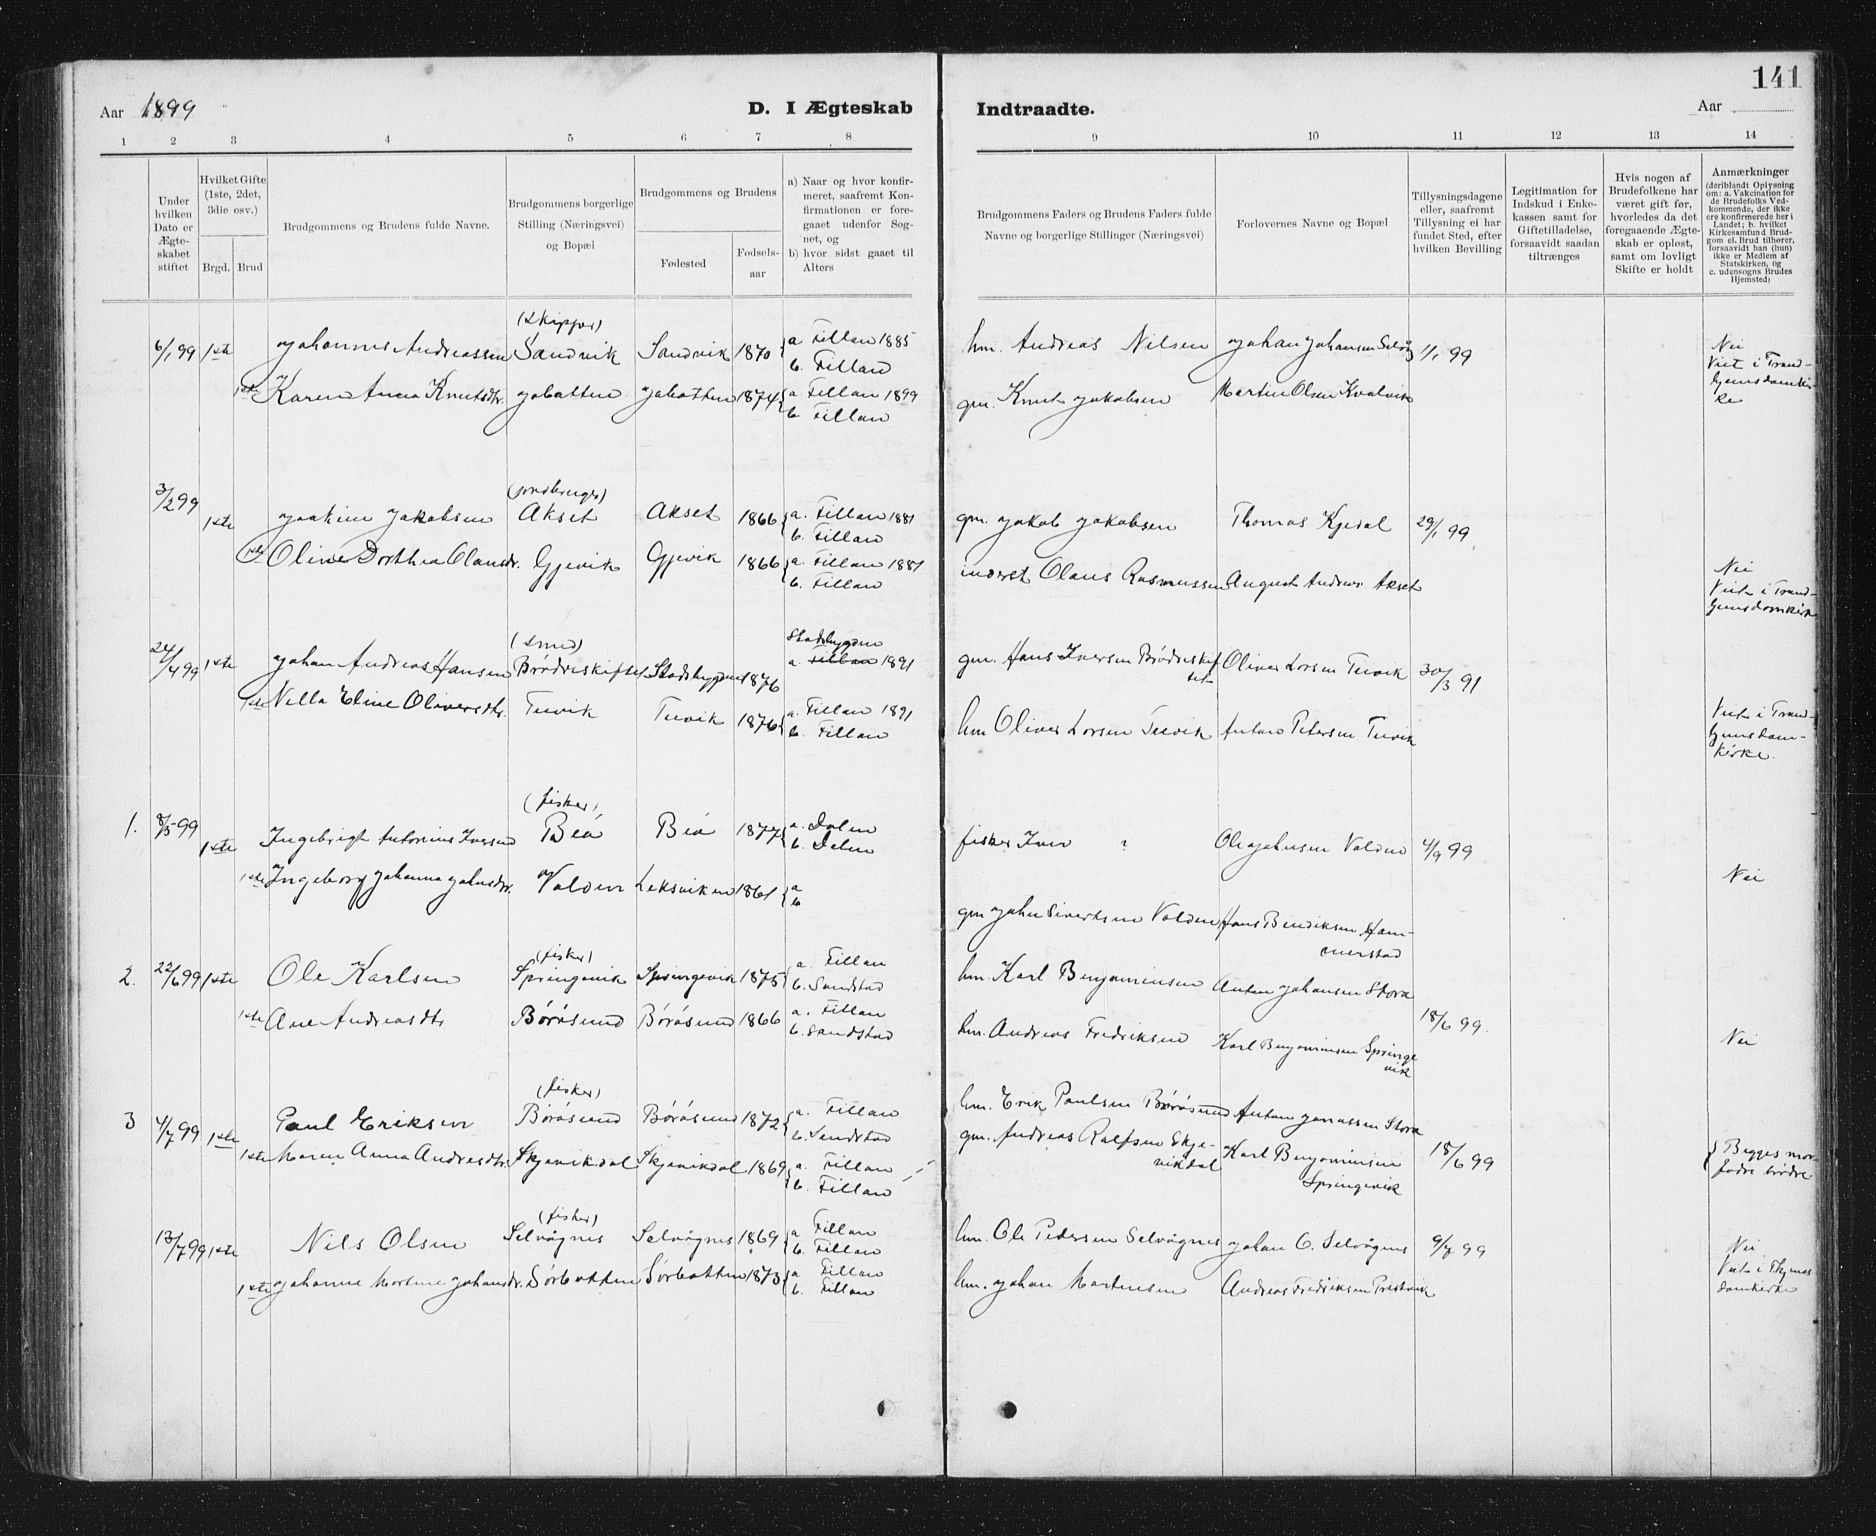 141
Aar 1899
D. I Ægteskab
Indtraadte.
Aar
1 2 3 4 5 6 7 8
9 10 11 12 13 14
Under hvilken Dato er Ægteskabet stiftet
Hvilket Gifte (1ste, 2det, 3die osv.)
Brgd. Brud
Brudgommens og Brudens fulde Navne.
Brudgommens borgerlige Stilling (Næringsvei) og Bopæl
Brudgommens og Brudens
Fødested
Fødselsaar
a) Naar og hvor konfirmeret, saafremt Konfirmationen er foregaaet udenfor Sognet, og
b) hvor sidst gaaet til Alters
Brudgommens Faders og Brudens Faders fulde Navne og borgerlige Stillinger (Næringsvei)
Forlovernes Navne og Bopæl
Tillysningsdagene eller, saafremt Tillysning ei har fundet Sted, efter hvilken Bevilling
Legitimation for Indskud i Enkekassen samt for Giftetilladelse, forsaavidt saadan tiltrænges
Hvis nogen af Brudefolkene har været gift før, hvorledes da det foregaaende Ægteskab er opløst, samt om lovligt Skifte er holdt
Anmærkninger
(deriblandt Oplysning om: a. Vakcination for de Brudefolks Vedkommende, der ikke ere konfirmerede her i Landet; b. hvilket Kirkesamfund Brudgom el. Brud tilhører, forsaavidt han (hun) ikke er Medlem af Statskirken, og c. udensogns Brudes Hjemsted)
(Skipper)
6/1 99 1ste Johannes Andreassen Sandvik Sandvik 1870 a Fillan 1885 b. Fillan hm. Andreas Nilsen Johan Johansen 1/1 99 Nei
1ste Karen Anna Knutsdtr. Jobotten Jobotten 1874 a Fillan 1899 b Fillan gm. Knut Jakobsen Martin Olsen Kvalvik
(gaardbruger)
3/2 99 1ste Joakim Jakobsen Akset Akset 1866 a. Fillan 1881 b. Fillan gm. Jakob Jakobsen Thomas Kjedal 29/1 99
1ste Oline Dorthea Olausdr. Gjevik Gjevik 1866 a Fillan 1881 b. Fillan inderst Olaus Rasmussen August Andreas Akset Nei
(Smed) Stadsbygden
24/4 99 1ste Johan Andreas Hansen Brødreskiftet Stadsbygden 1876 a. Fillan 1891 gm. Hans Iversen Brødreskiftet Oliver Larsen Tuvik 30/3 91
1ste Nella Eline Oliversdtr. Tuvik Tuvik 1876 a. Fillan 1891 b. Fillan hm Oliver Larsen Tuvik Anton Petersen Tuvik
(fisker)
1. 8/5 99 1ste Ingebrigt Antonius Iversen Beå Beå 1877 a. Dolm b. Dolm fisker Iver ? Ole Johnsen Valden 4/9 99
1ste Ingeborg Johanna Johnsdtr. Valden Leksviken 1861 a b gm John Sivertsen Valden Hans Bendiksen Hammerstad Nei
(fisker)
2. 22/6 99 1ste Ole Karlsen Springevik Springevik 1875 a. Fillan b. Sandstad hm. Karl Benjaminsen Anton Johansen Stora
1ste Ane Andreasdtr Børøsund Børøsund 1866 a. Fillan b. Sandstad hm. Andreas Fredriksen Karl Benjaminsen Springevik 18/6 99. Nei
(fisker)
3 4/7 99 1ste Paul Eriksen Børøsund Børøsund 1872 a. Fillan b. Sandstad hm. Erik Paulsen Børøsund Anton Jonassen Stora
1ste Maren Anna Andreasdtr. Skjævikdal Skjævikdal 1869 a. Fillan b. Fillan gm. Andreas Rolfsen Skjevikdal Karl Benjaminsen Springevik 18/6 99 Begges morfadre brødre
(fisker)
13/7 99 1ste Nils Olsen Selvågnes Selvågnes 1869 a Fillan b. Fillan hm. Ole Pedersen Selvågnes Johan O. Selvågnes 9/7 99 Nei
1ste Johanne Martine Johansdr. Sørbotten Sørbotten 1873 a Fillan b. Fillan hm. Johan Martinsen Andreas Fredriksen Prestvik